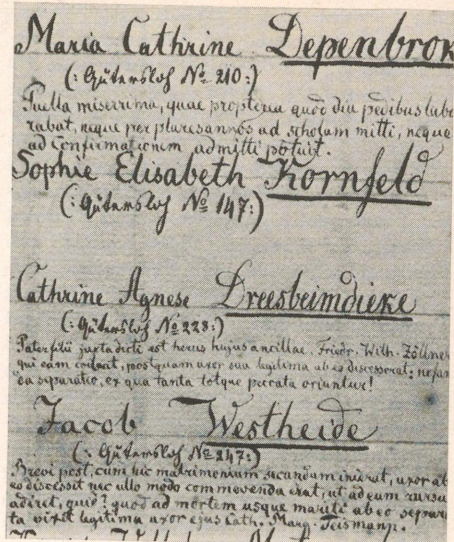 Maria Cathrine Depenbrok
(: Gütersloh № 210:)
Puella miserrima, quae propterea quod diu pedibus labo
rabat, neque per plures annos ad scholam mitti, neque
ad Confirmationem admitti potuit.
Sophie Elisabeth Kornfeld
(: Gütersloh № 147:)
Cathrine Agnese Dreesbeimdieke
(: Gütersloh № 228:)
Pater filii juxta dicti est herus hujus ancillae. Friedr. Wilh. Zöllner
qui eam postquam uxor sua legitima ab eo discesserat; nefan
ea separatio, ex qua tanta totque peccata oriuntur!
Jacob Westheide
(: Gütersloh № 247:)
Brevi post, cum hic matrimonium secundum inierat, uxor ab
eo discessit nec ullo modo commovenda erat, ut ad eum rursu
adiret, quid? quod ad mortem usque mariti ab eo separa
ta vixit legitima uxor ejus Cath. Marg. Teismann.